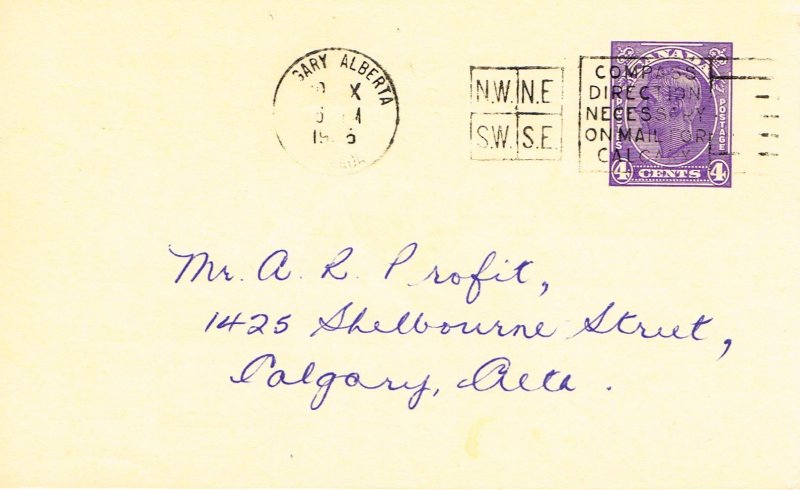 GARY ALBERTA
X
19 6
N.W. N.E
S.W. S.E.
COMPASS
DIRECTION
NECESSARY
ON MAIL FOR
CALGARY
CANADA
POSTES POSTAGE
4 CENTS 4
Mr. A. R. Profit,
1425 Shelbourne Street,
Calgary, Alta.